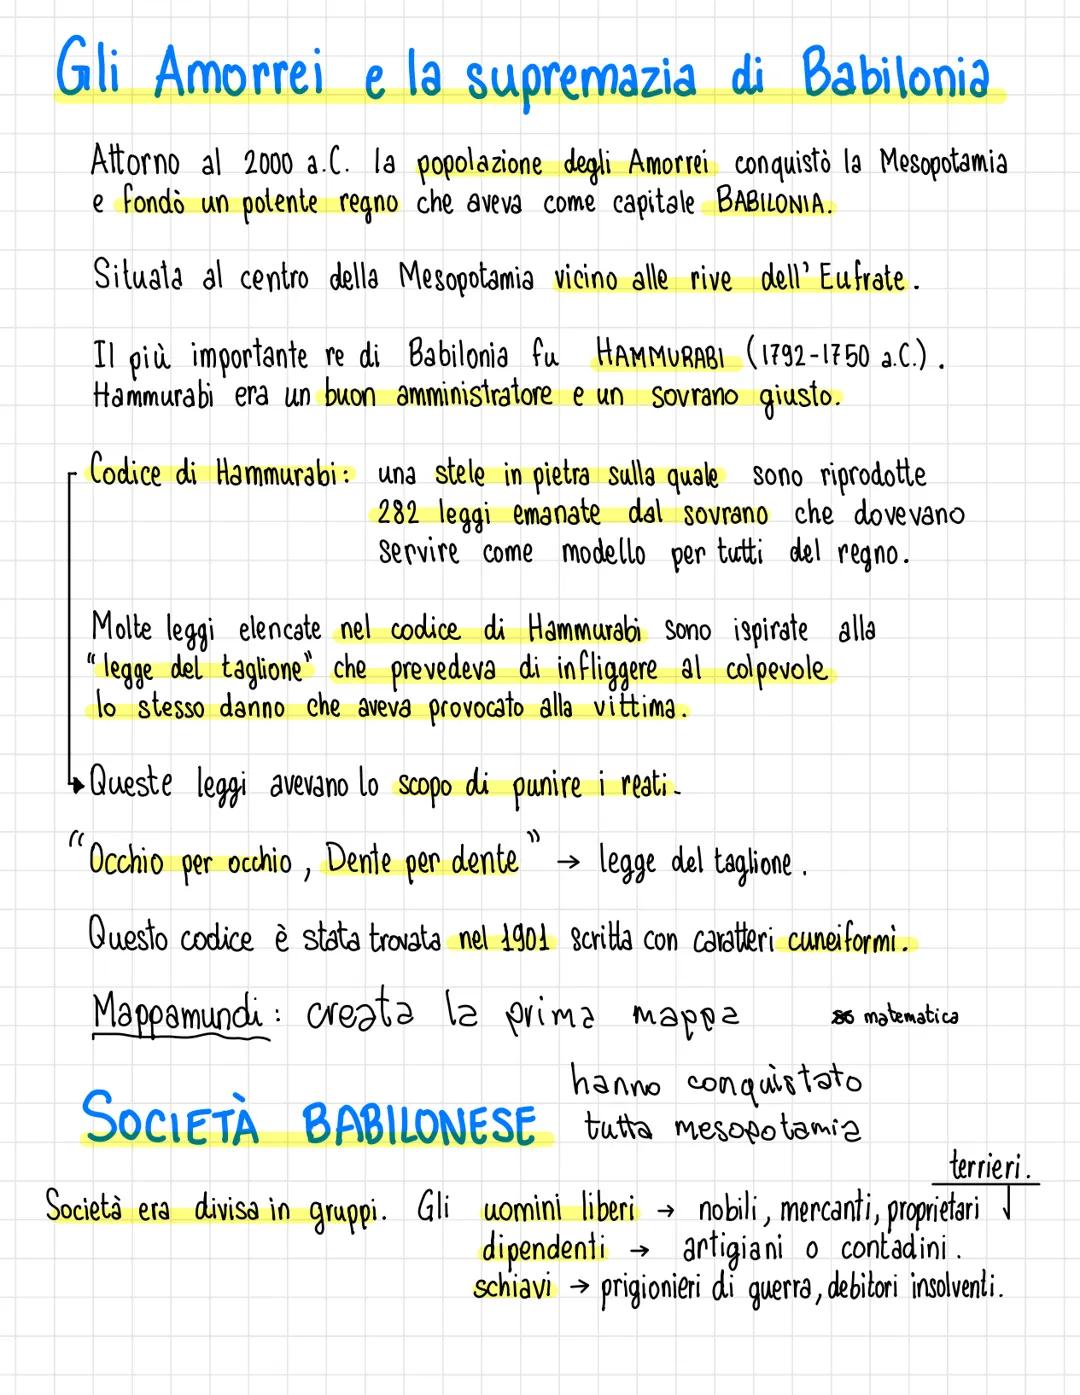 Gli Amorrei e la supremazia di Babilonia
Attorno al 2000 a.C. la popolazione degli Amorrei conquistò la Mesopotamia
e fondò un potente regno che aveva come capitale BABILONIA.
Situata al centro della Mesopotamia vicino alle rive dell'Eufrate.
Il più importante re di Babilonia fu HAMMURABI (1792-1750 a.C.).
Hammurabi era un buon amministratore e un sovrano giusto.
Codice di Hammurabi: una stele in pietra sulla quale sono riprodotte
282 leggi emanate dal sovrano che dovevano
servire come modello per tutti del regno.
Molte leggi elencate nel codice di Hammurabi sono ispirate alla
"legge del taglione" che prevedeva di infliggere al colpevole
lo stesso danno che aveva provocato alla vittima.
→ Queste leggi avevano lo scopo di punire i reati.
"Occhio per occhio, Dente per dente" → legge del taglione.
Questo codice è stata trovata nel 1901 scritta con caratteri cuneiformi.
Mappamundi: creata la prima mappa matematica
hanno conquistato
SOCIETÀ BABILONESE tutta mesopotamia
terrieri.
Società era divisa in gruppi. Gli uomini liberi → nobili, mercanti, proprietari ↓
dipendenti → artigiani o contadini.
schiavi → prigionieri di guerra, debitori insolventi.